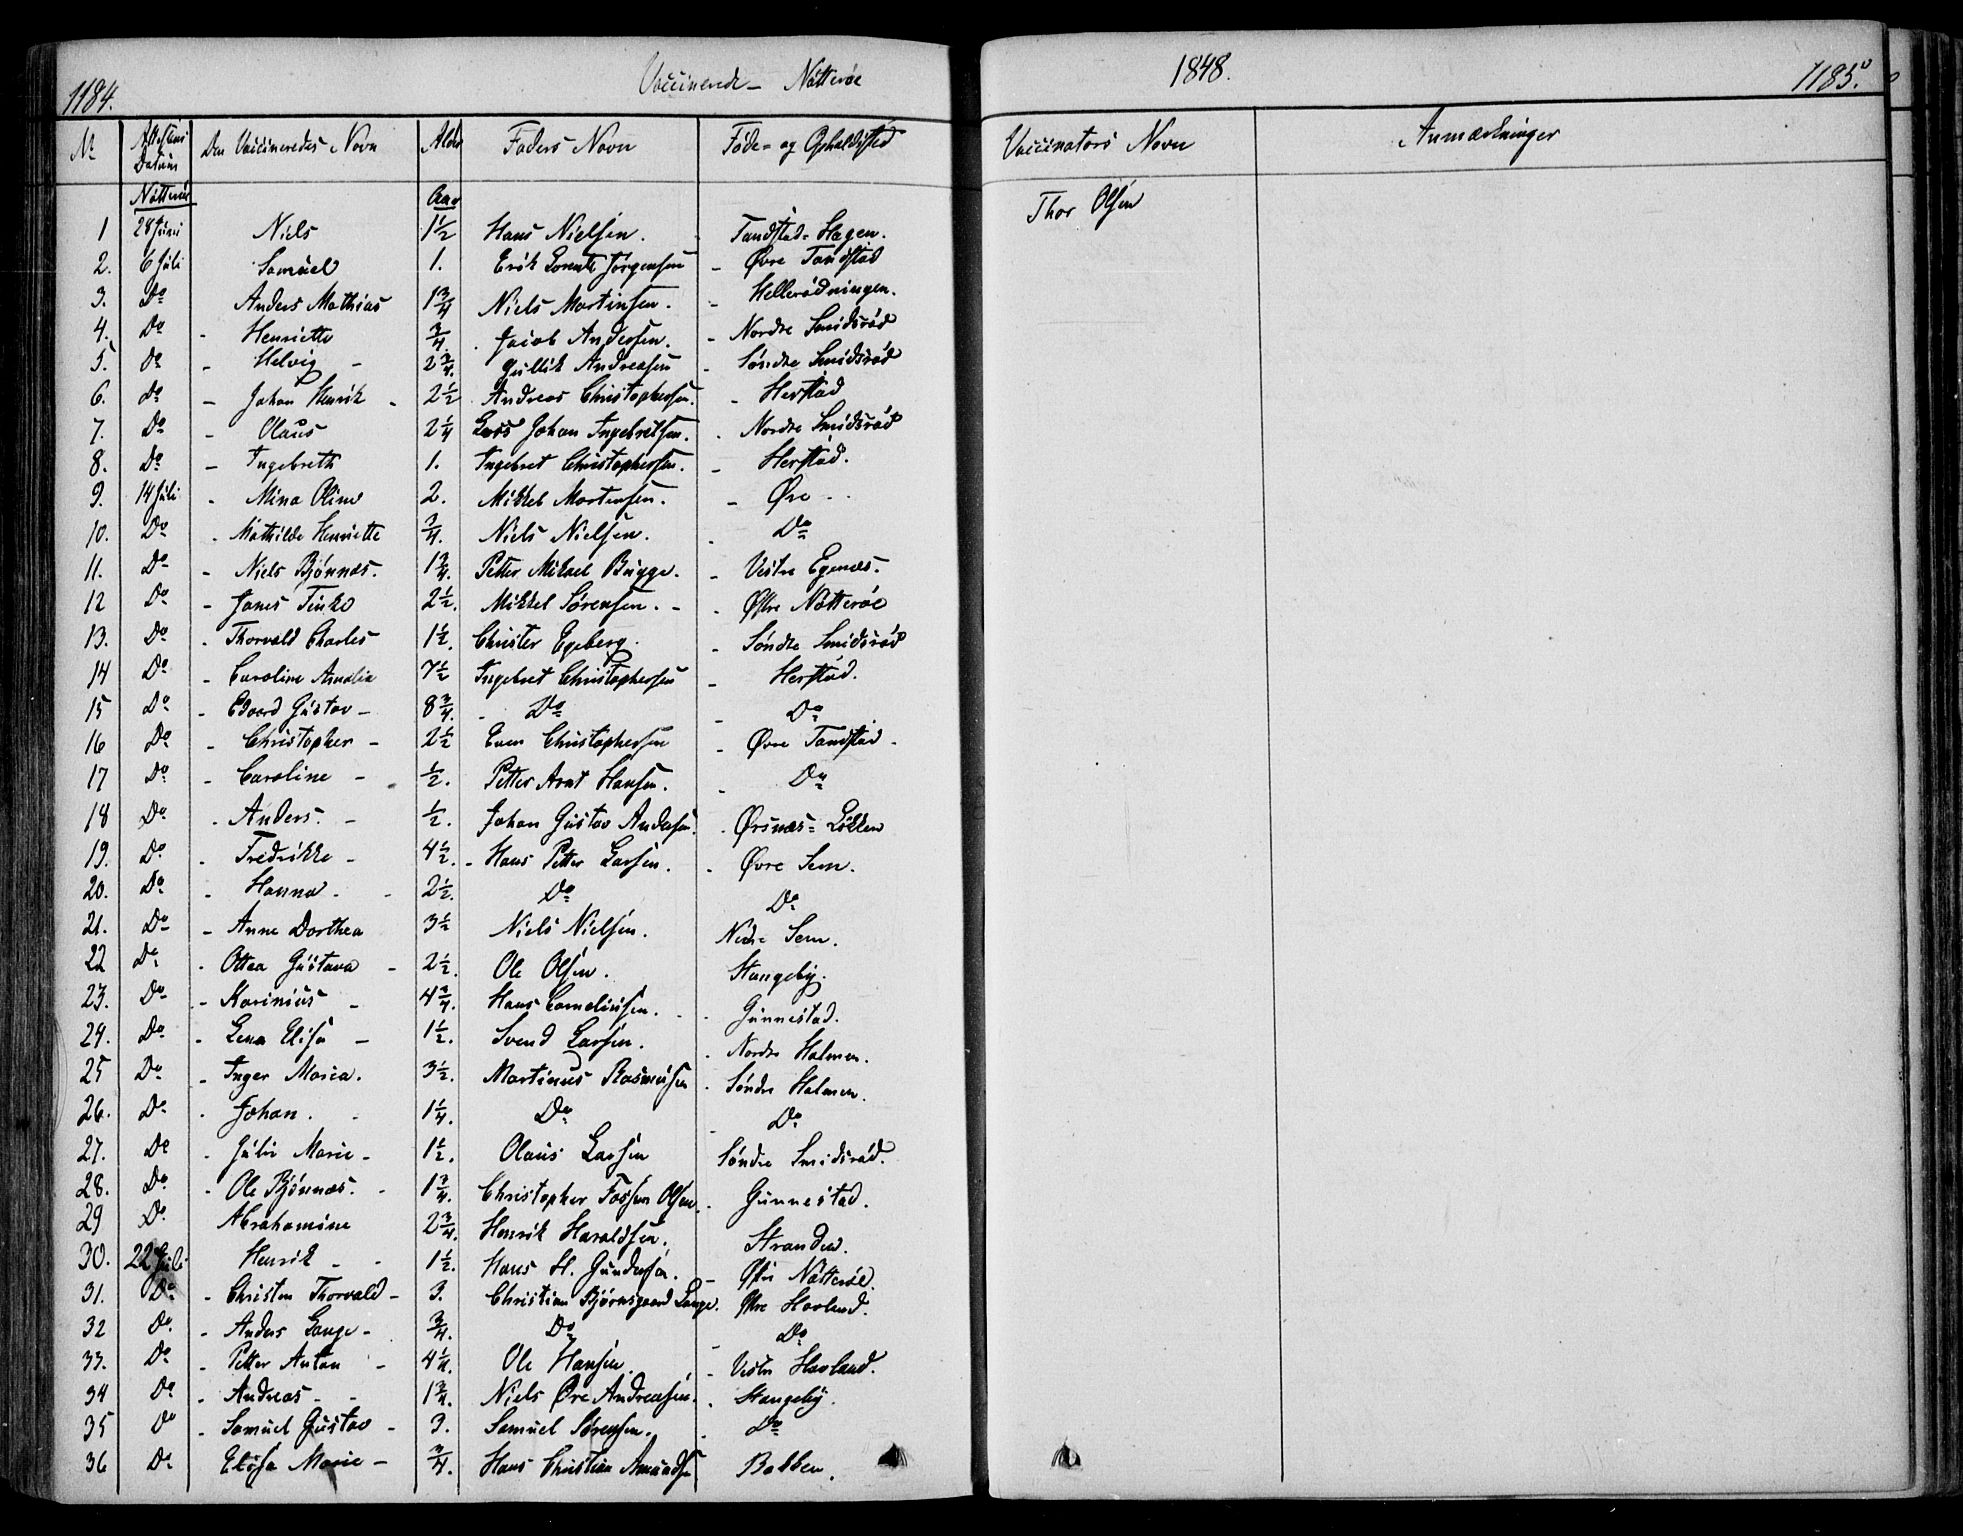 1184. Vaccinerede – Nøtterøe 1848. 1185.
No Attestens Datum Den Vaccineredes Navn Alder Faders Navn Føde- og Opholdssted Vaccinators Navn Anmærkninger
Nøtterøe Aar
1 28 Juni Niels 1½ Hans Nielsen. Tandstad-Hagen. Thor Olsen
2. 6 Juli Samuel 1. Erik Lorents Jørgensen Øvre Tandstad
3. Do Anders Mathias 1¾ Niels Martinsen. Hellerødningen.
4. Do Henriette ¾ Jacob Andersen. Nordre Smidsrød
5. Do Helvig 2¾ Gullik Andreasen Søndre Smidsrød
6. Do Johan Henrik 2½ Andreas Christophersen. Herstad
7. Do Olaus 2¼ Lars Johan Ingebretsen. Nordre Smidsrød
8. Do Ingebreth 1. Ingebret Christophersen. Herstad.
9. 14 Juli Mina Oline 2. Mikkel Mortensen. Øre
10. Do Mathilde Henriette ¾. Niels Nielsen. Do
11. Do Niels Bjønnæs. 1¾. Petter Mikael Bugge. Vestre Egenæs.
12 Do Janes 2½. Mikkel Sørensen. Østre Nøtterøe
13. Do Thorvald Charles 1½. Christer Egeberg. Søndre Smidsrød
14 Do Caroline Amalia 7½ Ingebret Christophersen Herstad.
15 Do Edvard Gustav 8¾. Do Do
16 Do Christopher 2½ Even Christophersen Øvre Tandstad
17 Do Caroline ½. Petter Arnt Hansen. Do
18 Do Anders. ½. Johan Gustav Andersen. Ørsnæs-Løkken
19. Do Fredrikke 4½. Hans Petter Larsen. Øvre Sem.
20. Do Hanna 2½. Do Do
21. Do Anne Dorthea 3½ Niels Nielsen. Nedre Sem.
22 Do Ottea Gustava 2½. Ole Olsen. Stangeby.
23. Do Karinius 4¾. Hans Corneliusen. Gunnestad.
24. Do Lena Elisa 1½. Svend Larsen. Nordre Holmen.
25 Do Inger Maria. 3½. Martinus Rasmusen Søndre Holmen.
26. Do Johan. 1¼. Do Do
27. Do Julie Marie 1½. Olaus Larsen Søndre Smidsrød.
28. Do Ole Bjønnæs. 1¾. Christopher Fossen Olsen. Gunnestad.
29 Do Abrahamine 2¾. Henrik Haraldsen. Stranden.
30. 22 Juli Henrik 1½. Hans H. Gundersen. Østre Nøtterøe.
31. Do Christen Thorvald 3. Christian Bjørnsgaard Lange. Østre Havland.
32 Do Anders Lange ¾. Do Do
33. Do Petter Anton 4¼. Ole Hansen. Vestre Havland.
34 Do Andreas 1¾. Niels Øre Andreasen. Stangeby.
35 Do Samuel Gustav 3. Samuel Sørensen. Do
36 Do Elisa Marie ¾. Hans Christian Amundsen Bakken.